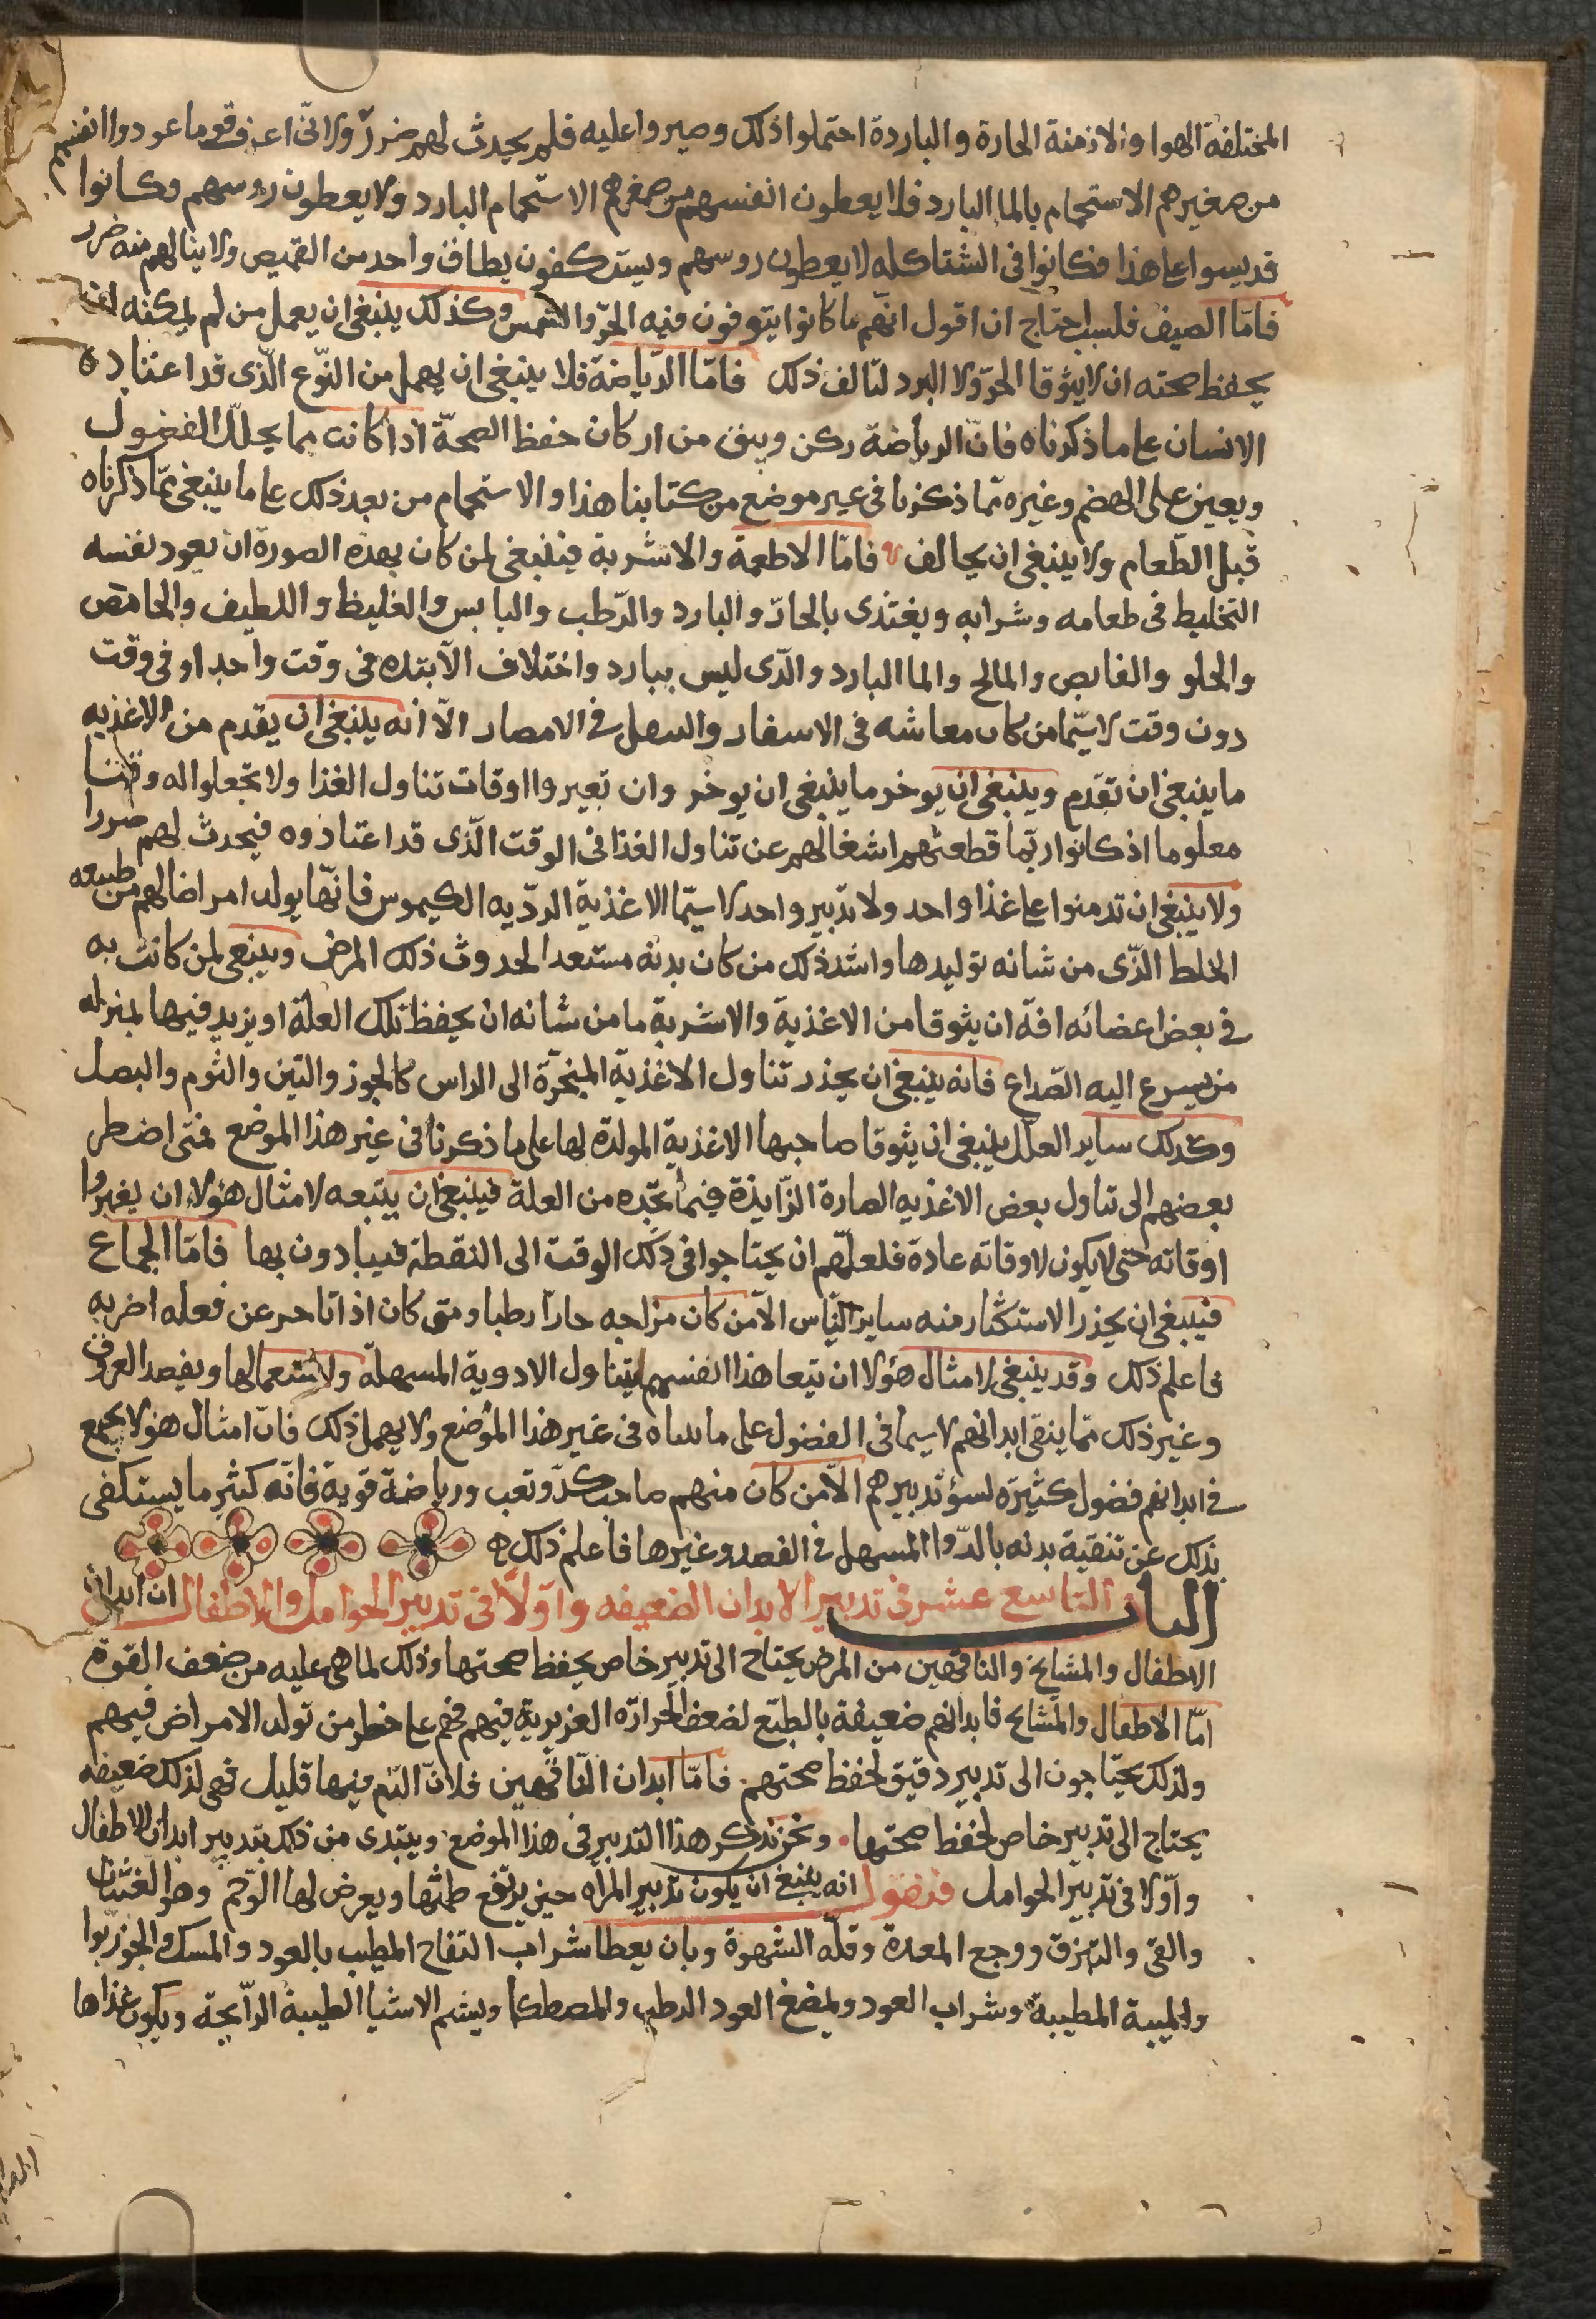 المختلفة الهوا والازمنة الحارة والباردة احتملوا ذلك وصبروا عليه فلم يحدث لهم ضرر ولانى اعرف قوما عودوا انفسهم
من صغرهم الاستحمام بالما البارد فلا يعطون انفسهم من صغرهم الاستحمام البارد ولا يعطون روسهم وكانوا
قد يسوا على هذا فكانوا فى الشتا كله لا يعطون روسهم ويستكفون بطاق واحد من القميص ولا ينالهم منه ضرر
فامّا الصيف فلست احتاج ان اقول انهم ما كانوا يتوقون فيه الحرّ والشمس وكذلك ينبغى ان يعمل من لم يمكنه ان
يحفظ صحته ان لا يتوقا الحرّ ولا البرد ليالف ذلك فامّا الرّياضة فلا ينبغى ان يهمل من النّوع الّذى قد اعتاده
الانسان على ما ذكرناه فانّ الرياضة ركن وثيق من اركان حفظ الصحّة اذا كانت مما يحلّل الفضول
ويعين على الهضم وغيره ممّا ذكرنا فى غير موضع من كتابنا هذا والاستحمام من بعد ذلك على ما ينبغى ممّا ذكرناه
قبل الطّعام ولا ينبغى ان يخالف فامّا الاطعمة والاشربة فينبغى لمن كان بهذه الصورة ان يعود نفسه
التخليط فى طعامه وشرابه ويغتذى بالحارّ والبارد والرّطب واليابس والغليظ واللطيف والحامض
والحلو والقابص والمالح والما البارد والّذى ليس ببارد واختلاف الانبذه فى وقت واحد او فى وقت
دون وقت لا سيّما من كان معاشه فى الاسفار والتنقل فى الامصار الاّ انه ينبغى ان يقدم من الاغذيه
ما ينبغى ان تقدّم وينبغى ان يوخر ما ينبغى ان يوخر وان تغيروا اوقات تناول الغذا ولا تجعلوا له وقتا
معلوما اذ كانوا ربّما قطعتهم اشغالهم عن تناول الغذا فى الوقت الّذى قد اعتادوه فيحدث لهم ضررا
ولا ينبغى ان تدمنوا على غذا واحد ولا تدبير واحد لا سيّما الاغذية الرديّه الكيموس فانّها يولد امراضا لهم من طبيعه
الخلط الّذى من شانه توليدها واشد ذلك من كان بدنه مستعدا لحدوث ذلك المرض وينبغى لمن كانت به
فى بعض اعضائه افة ان يتوقا من الاغذية والاشربة ما من شانه ان يحفظ تلك العلة او يزيد فيها بمنزله
من يسرع اليه الصّداع فانه ينبغى ان يحذر تناول الاغذية المبخرّة الى الراس كالجوز والتين والثوم والبصل
وكذلك ساير العلل ينبغى ان يتوقا صاحبها الاغذية المولدة لها على ما ذكرنا فى غير هذا الموضع فمتى اضطر
بعضهم الى تناول بعض الاغذيه الضارة الزّايدة فيما تجده من العلة فينبغى ان يتبعه لامثال هؤلاء ان يغيروا
اوقاته حتى لا يكون لاوقاته عادة فلعلّهم ان يحتاجوا فى ذلك الوقت الى النقطة فيبادون بها فامّا الجماع
فينبغى ان يحذر الاستكثار منه ساير النّاس الاّ من كان مزاجه حارّا رطبا ومتى كان اذا تاخر عن فعله اضر به
فاعلم ذلك وقد ينبغى لامثال هؤلا ان يتعاهدوا انفسهم بتناول الادوية المسهلة واستعمالها وبفصد العروق
وغير ذلك ممّا ينقى ابدانهم لا سيما فى الفضول على ما بيناه فى غير هذا الموضع ولا يهمل ذلك فانّ امثال هولا يجمع
فى ابدانهم فضول كثيرة لسؤ تدبيرهم الاّ من كان منهم صاحب كدّ وتعب ورياضة قوية فانّه كثير ما يستكفى
بذلك عن تنقية بدنه بالدّوا المسهل فى الفصد وغيرها فاعلم ذلك
الباب التاسع عشر فى تدبير الابدان الضعيفه واوّلا فى تدبير الحوامل والاطفال ان ابدان
الاطفال والمشايخ والناقهين من المرض يحتاج الى تدبير خاص يحفظ صحتها وذلك لما هى عليه من ضعف القوة
امّا الاطفال والمشايخ فابدانهم ضعيفة بالطبّع لضعف الحرارة الغريزية فيهم فهم على خطر من تولد الامراض فيهم
ولذلك يحتاجون الى تدبير دقيق لحفظ صحتهم فامّا ابدان النّاقهين فلانّ الدّم فيها قليل فهى لذلك ضعيفه
يحتاج الى تدبير خاص لحفظ صحتها ونحن نذكر هذا التدبير فى هذا الموضع ويبتدى من ذلك بتدبير ابدان الاطفال
واوّلا فى تدبير الحوامل فنقول انه ينبغى ان يكون تدبير المرأه حين يرتفع طمثها ويعرض لها الوحم وهو الغثيان
والقى والتهزق ووجع المعدة وقلّه الشهوة وبان يعطا شراب التفاح المطيب بالعود والمسك والجوزبوا
والميبة المطيبة وشراب العود ويمضغ العود الرطب والمصطكا ويشم الاشيا الطيبة الرّايحة ويكون غذاها